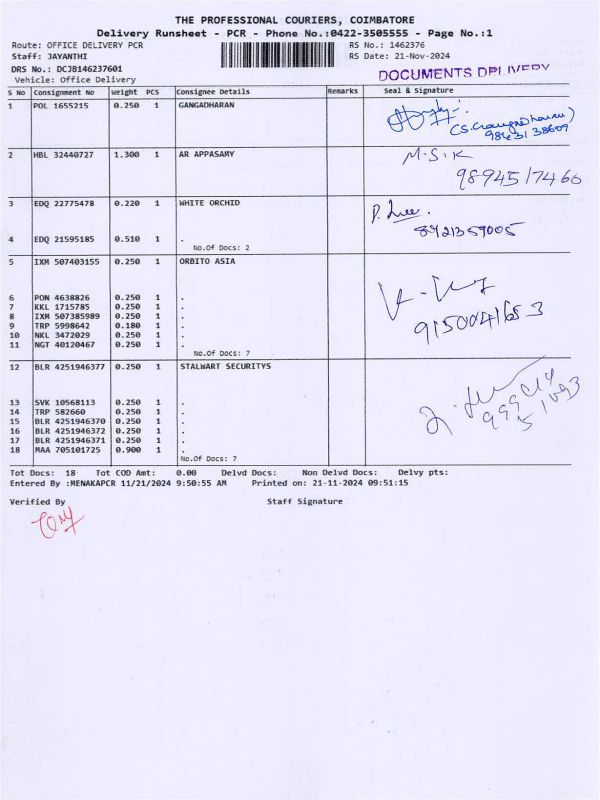 THE PROFESSIONAL COURIERS, COIMBATORE
Delivery Runsheet - PCR - Phone No.:0422-3505555 - Page No.:1
Route: OFFICE DELIVERY PCR RS No.: 1462376
Staff: JAYANTHI RS Date: 21-Nov-2024
DRS No.: DCJB146237601
Vehicle: Office Delivery DOCUMENTS DELIVERY
S No Consignment No Weight PCS Consignee Details Remarks Seal & Signature
1 POL 1655215 0.250 1 GANGADHARAN
2 HBL 32440727 1.300 1 AR APPASAMY M.S.K
98945 17466
3 EDQ 22775478 0.220 1 WHITE ORCHID
8921359005
4 EDQ 21595185 0.510 1 .
No.Of Docs: 2
5 IXM 507403155 0.250 1 ORBITO ASIA
6 PON 4638826 0.250 1 .
7 KKL 1715785 0.250 1 .
8 IXM 507385989 0.250 1 .
9 TRP 5998642 0.180 1 .
10 NKL 3472029 0.250 1 .
11 NGT 40120467 0.250 1 .
No.Of Docs: 7
12 BLR 4251946377 0.250 1 STALWART SECURITYS
13 SVK 10568113 0.250 1 .
14 TRP 582660 0.250 1 .
15 BLR 4251946370 0.250 1 .
16 BLR 4251946372 0.250 1 .
17 BLR 4251946371 0.250 1 .
18 MAA 705101725 0.900 1 .
No.Of Docs: 7
Tot Docs: 18 Tot COD Amt: 0.00 Delvd Docs: Non Delvd Docs: Delvy pts:
Entered By :MENAKAPCR 11/21/2024 9:50:55 AM Printed on: 21-11-2024 09:51:15
Verified By Staff Signature